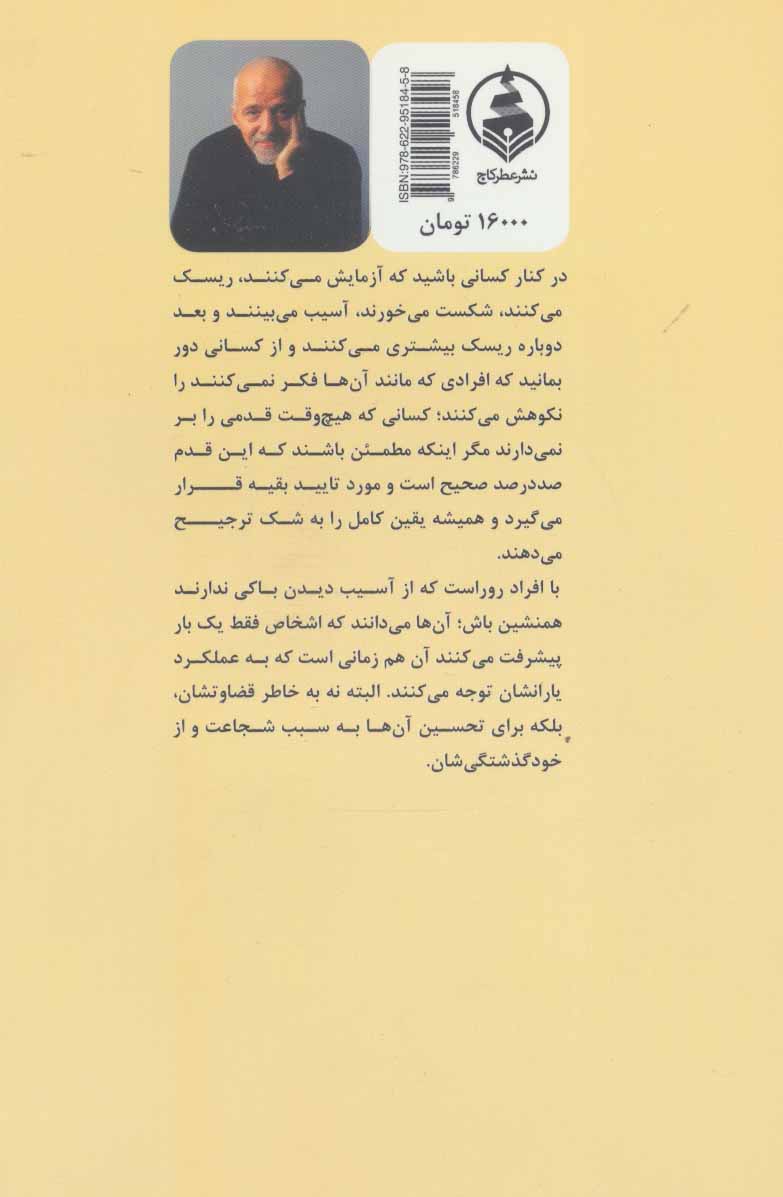 ISBN:978-622-95184-5-8
9 786229 518458
نشر عطر کاج
۱۶۰۰۰ تومان
در کنار کسانی باشید که آزمایش می‌کنند، ریسک
می‌کنند، شکست می‌خورند، آسیب می‌بینند و بعد
دوباره ریسک بیشتری می‌کنند و از کسانی دور
بمانید که افرادی که مانند آن‌ها فکر نمی‌کنند را
نکوهش می‌کنند؛ کسانی که هیچ‌وقت قدمی را بر
نمی‌دارند مگر اینکه مطمئن باشند که این قدم
صددرصد صحیح است و مورد تایید بقیه قرار
می‌گیرد و همیشه یقین کامل را به شک ترجیح
می‌دهند.
با افراد روراست که از آسیب دیدن باکی ندارند
همنشین باش؛ آن‌ها می‌دانند که اشخاص فقط یک بار
پیشرفت می‌کنند آن هم زمانی است که به عملکرد
یارانشان توجه می‌کنند. البته نه به خاطر قضاوتشان،
بلکه برای تحسین آن‌ها به سبب شجاعت و از
خودگذشتگی‌شان.